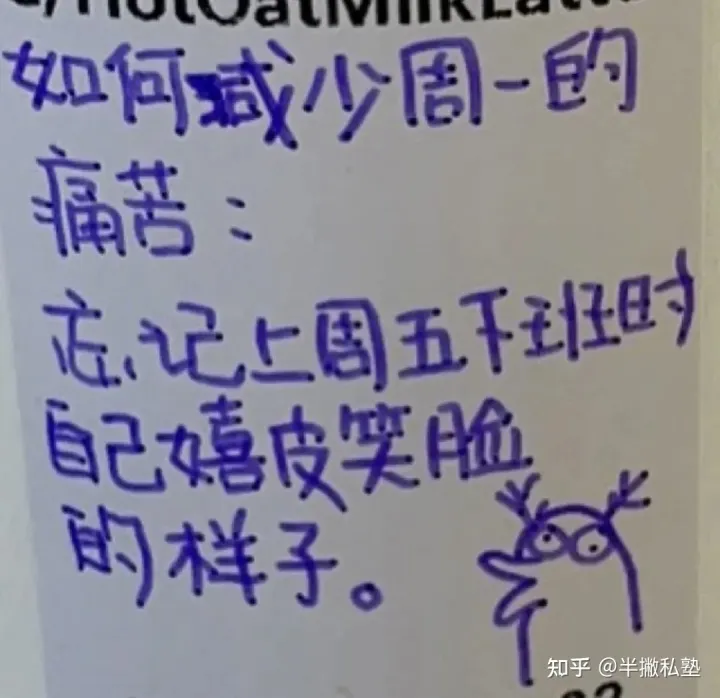 /HotOatMilkLatte
如何减少周一的
痛苦：
忘记上周五下班时
自己嬉皮笑脸
的样子。
知乎 @半撇私塾